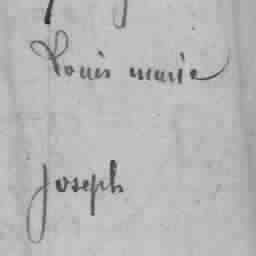 Louis marie
Joseph